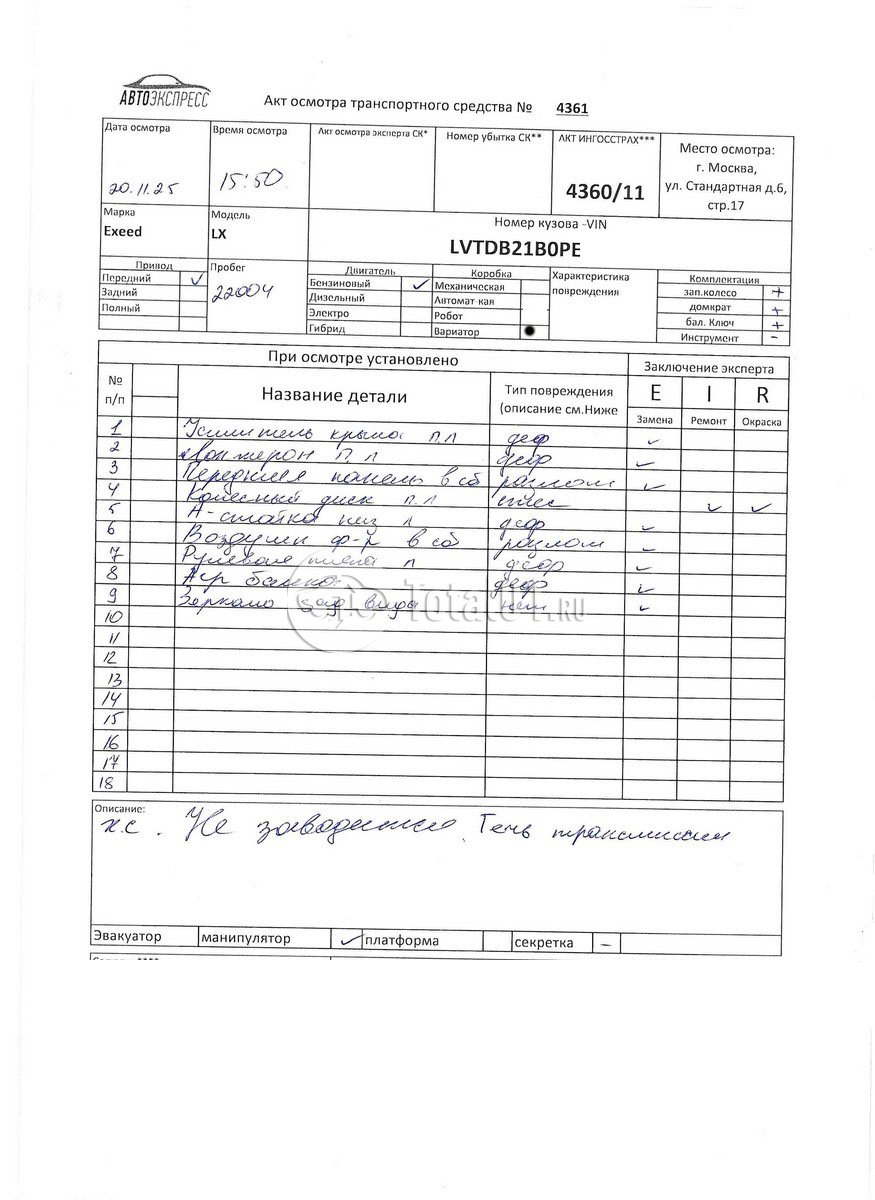 АВТОЭКСПРЕСС
Акт осмотра транспортного средства № 4361
Дата осмотра
20.11.25
Время осмотра
15:50
Акт осмотра эксперта СК*
Номер убытка СК**
АКТ ИНГОССТРАХ***
4360/11
Место осмотра:
г. Москва,
ул. Стандартная д.6,
стр.17
Марка
Exeed
Модель
LX
Номер кузова -VIN
LVTDB21B0PE
Привод
Передний ✓
Задний
Полный
Пробег
22004
Двигатель
Бензиновый ✓
Дизельный
Электро
Гибрид
Коробка
Механическая
Автомат-кая
Робот
Вариатор ●
Характеристика
повреждения
Комплектация
зап.колесо +
домкрат +
бал. Ключ +
Инструмент -
При осмотре установлено
Заключение эксперта
№
п/п
Название детали
Тип повреждения
(описание см.Ниже
E I R
Замена Ремонт Окраска
1 Усилитель крыла п.л деф ✓
2 Лонжерон п л деф ✓
3 Передняя панель в сб разлом ✓
4 Колесный диск п.л стес ✓ ✓
5 А-стойка низ л деф ✓
6 Воздушн ф-р в сб разлом ✓
7 Рулевая тяга л деф ✓
8 деф ✓
9 Зеркало зад вида нет ✓
10
11
12
13
14
15
16
17
18
Total01.RU
Описание:
х.с. Не заводится. Течь трансмиссии
Эвакуатор манипулятор ✓ платформа секретка -